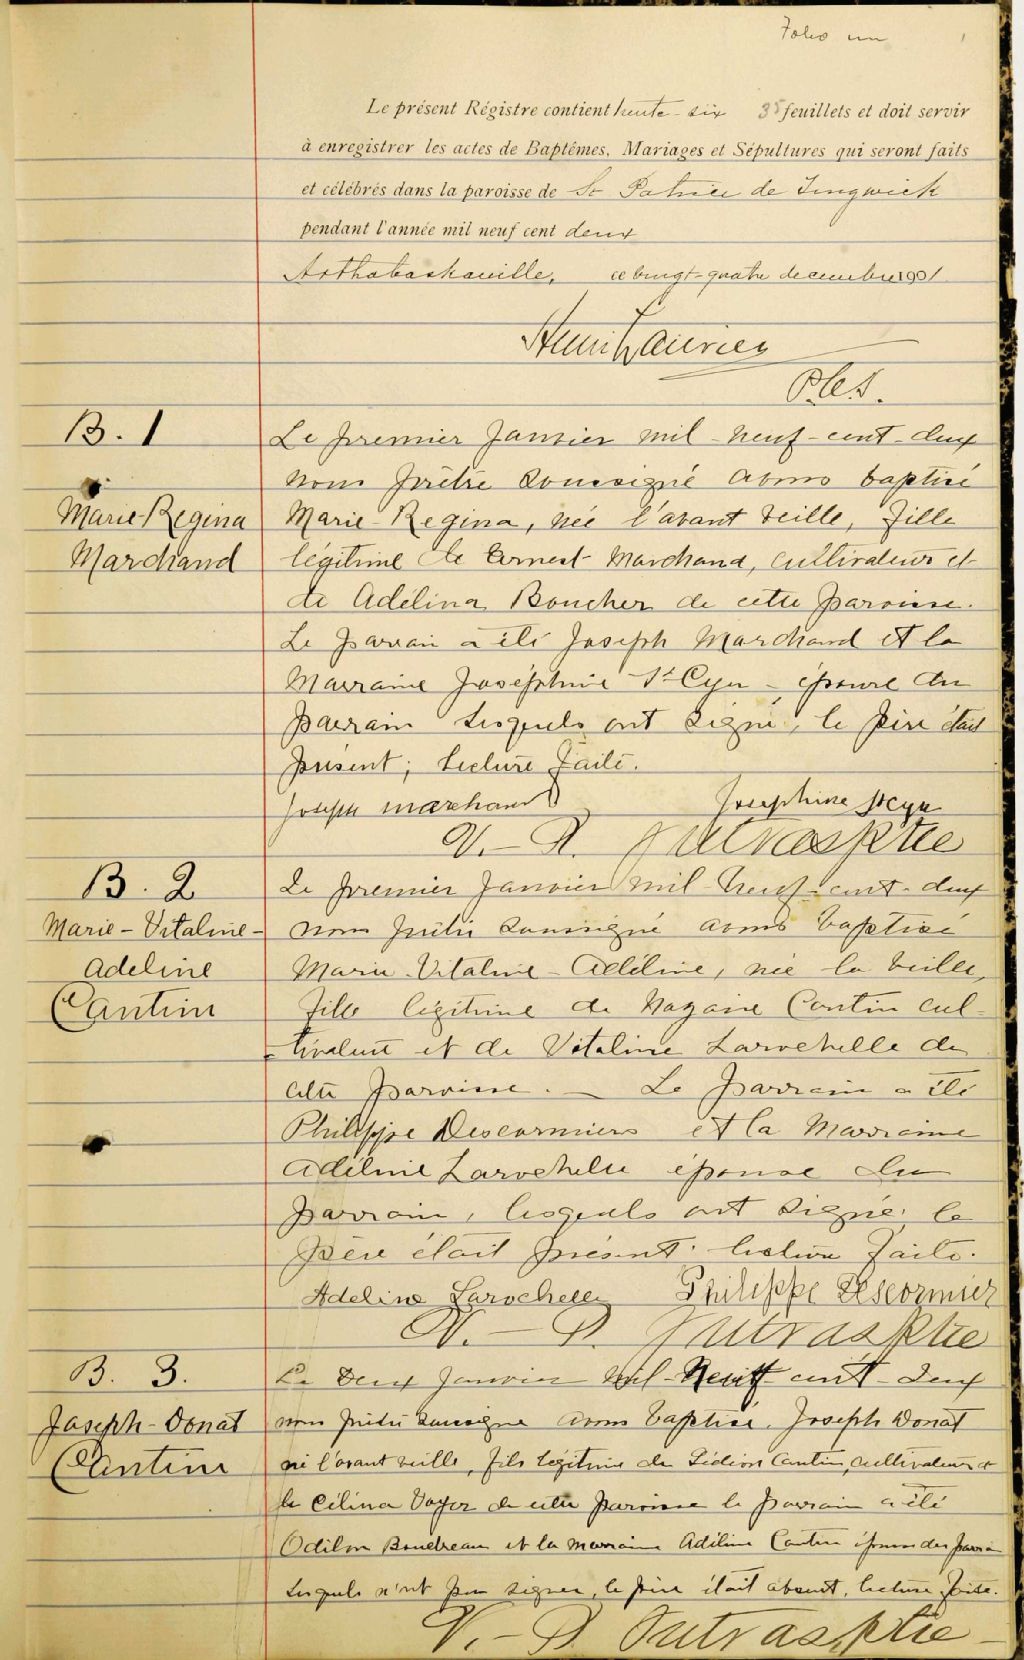 Folio un
Le présent Régistre contient trente-six 35 feuillets et doit servir
à enregistrer les actes de Baptêmes, Mariages et Sépultures qui seront faits
et célébrés dans la paroisse de St Patrice de Tingwick
pendant l'année mil neuf cent deux
Arthabaskaville, ce vingt-quatre decembre 1901
Henri Laurier
P.C.S.
B. 1
Marie-Regina
Marchand
Le premier Janvier mil-neuf-cent-deux
nous prêtre soussigné avons baptisé
Marie-Regina, née l'avant veille, fille
légitime de Ernest Marchand, cultivateur et
de Adélina Boucher de cette paroisse.
Le parrain a été Joseph Marchand et la
Marraine Joséphine St-Cyr - épouse du
parrain lesquels ont signé, le père était
présent; lecture faite.
Joseph Marchand Josephine St cyr
V.-P. Jutras Ptre
B. 2
Marie-Vitaline-
Adeline
Cantin
Le premier Janvier mil-neuf-cent-deux
nous prêtre soussigné avons baptisé
Marie-Vitaline-Adéline, née la veille,
fille légitime de Nazaire Cantin cul-
-tivateur et de Vitaline Larochelle de
cette paroisse. - Le parrain a été
Philippe Descormiers et la Marraine
Adéline Larochelle épouse du
parrain, lesquels ont signé; le
père était présent. lecture faite.
Adeline Larochelle Philippe Descormier
V.-P. Jutras Ptre
B. 3.
Joseph-Donat
Cantin
Le Deux Janvier mil-Neuf cent-deux
nous prêtre soussigné avons baptisé Joseph Donat
né l'avant veille, fils légitime de Gédéon Cantin, cultivateur et
de Célina Voyer de cette paroisse le parrain a été
Odilon Boudreau et la marraine Adéline Cantin épouse du parrain
lesquels n'ont pu signer, le père était absent, lecture faite.
V.-P. Jutras, Ptre